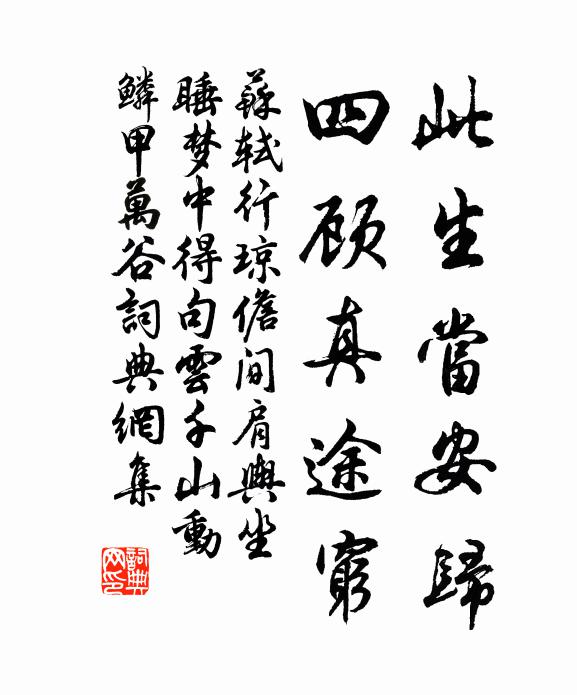 此生當安歸
四顾真途窮
蘇軾行琼儋间肩輿坐
睡梦中得句雲千山動
鱗甲萬谷詞典網集
詞典网印